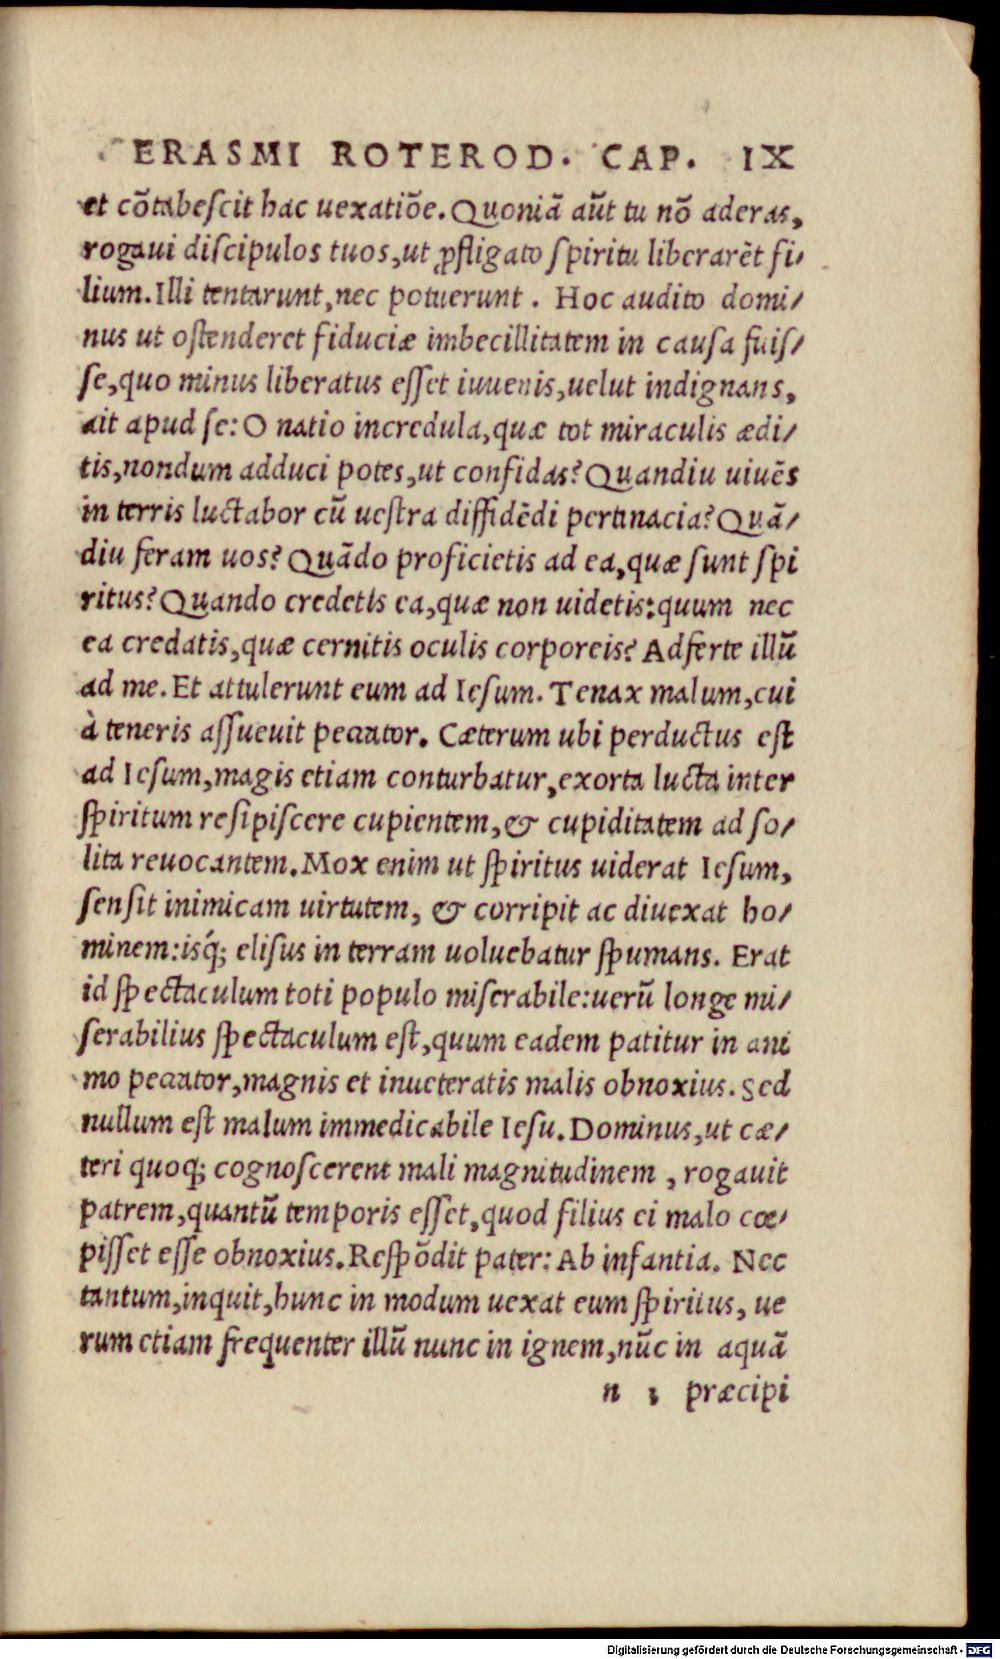 ERASMI ROTEROD. CAP. IX
et cõtabescit hac uexatiõe. Quoniã aũt tu nõ aderas,
rogaui discipulos tuos, ut ꝓfligato spiritu liberarẽt fi/
lium. Illi tentarunt, nec potuerunt. Hoc audito domi/
nus ut ostenderet fiduciæ imbecillitatem in causa fuis/
se, quo minus liberatus esset iuuenis, uelut indignans,
ait apud se: O natio incredula, quæ tot miraculis ædi/
tis, nondum adduci potes, ut confidas? Quandiu uiuẽs
in terris luctabor cũ uestra diffidẽdi pertinacia? Quã/
diu feram uos? Quãdo proficietis ad ea, quæ sunt spi
ritus? Quando credetis ea, quæ non uidetis: quum nec
ea credatis, quæ cernitis oculis corporeis? Adferte illũ
ad me. Et attulerunt eum ad Iesum. Tenax malum, cui
à teneris assueuit peccator. Cæterum ubi perductus est
ad Iesum, magis etiam conturbatur, exorta lucta inter
spiritum resipiscere cupientem, & cupiditatem ad so/
lita reuocantem. Mox enim ut spiritus uiderat Iesum,
sensit inimicam uirtutem, & corripit ac diuexat ho/
minem: isq́; elisus in terram uoluebatur spumans. Erat
id spectaculum toti populo miserabile: uerũ longe mi/
serabilius spectaculum est, quum eadem patitur in ani
mo peccator, magnis et inueteratis malis obnoxius. Sed
nullum est malum immedicabile Iesu. Dominus, ut cæ/
teri quoq; cognoscerent mali magnitudinem, rogauit
patrem, quantũ temporis esset, quod filius ei malo cœ/
pisset esse obnoxius. Respõdit pater: Ab infantia. Nec
tantum, inquit, hunc in modum uexat eum spiritus, ue
rum etiam frequenter illũ nunc in ignem, nũc in aquã
n 3 præcipi
Digitalisierung gefördert durch die Deutsche Forschungsgemeinschaft - DFG